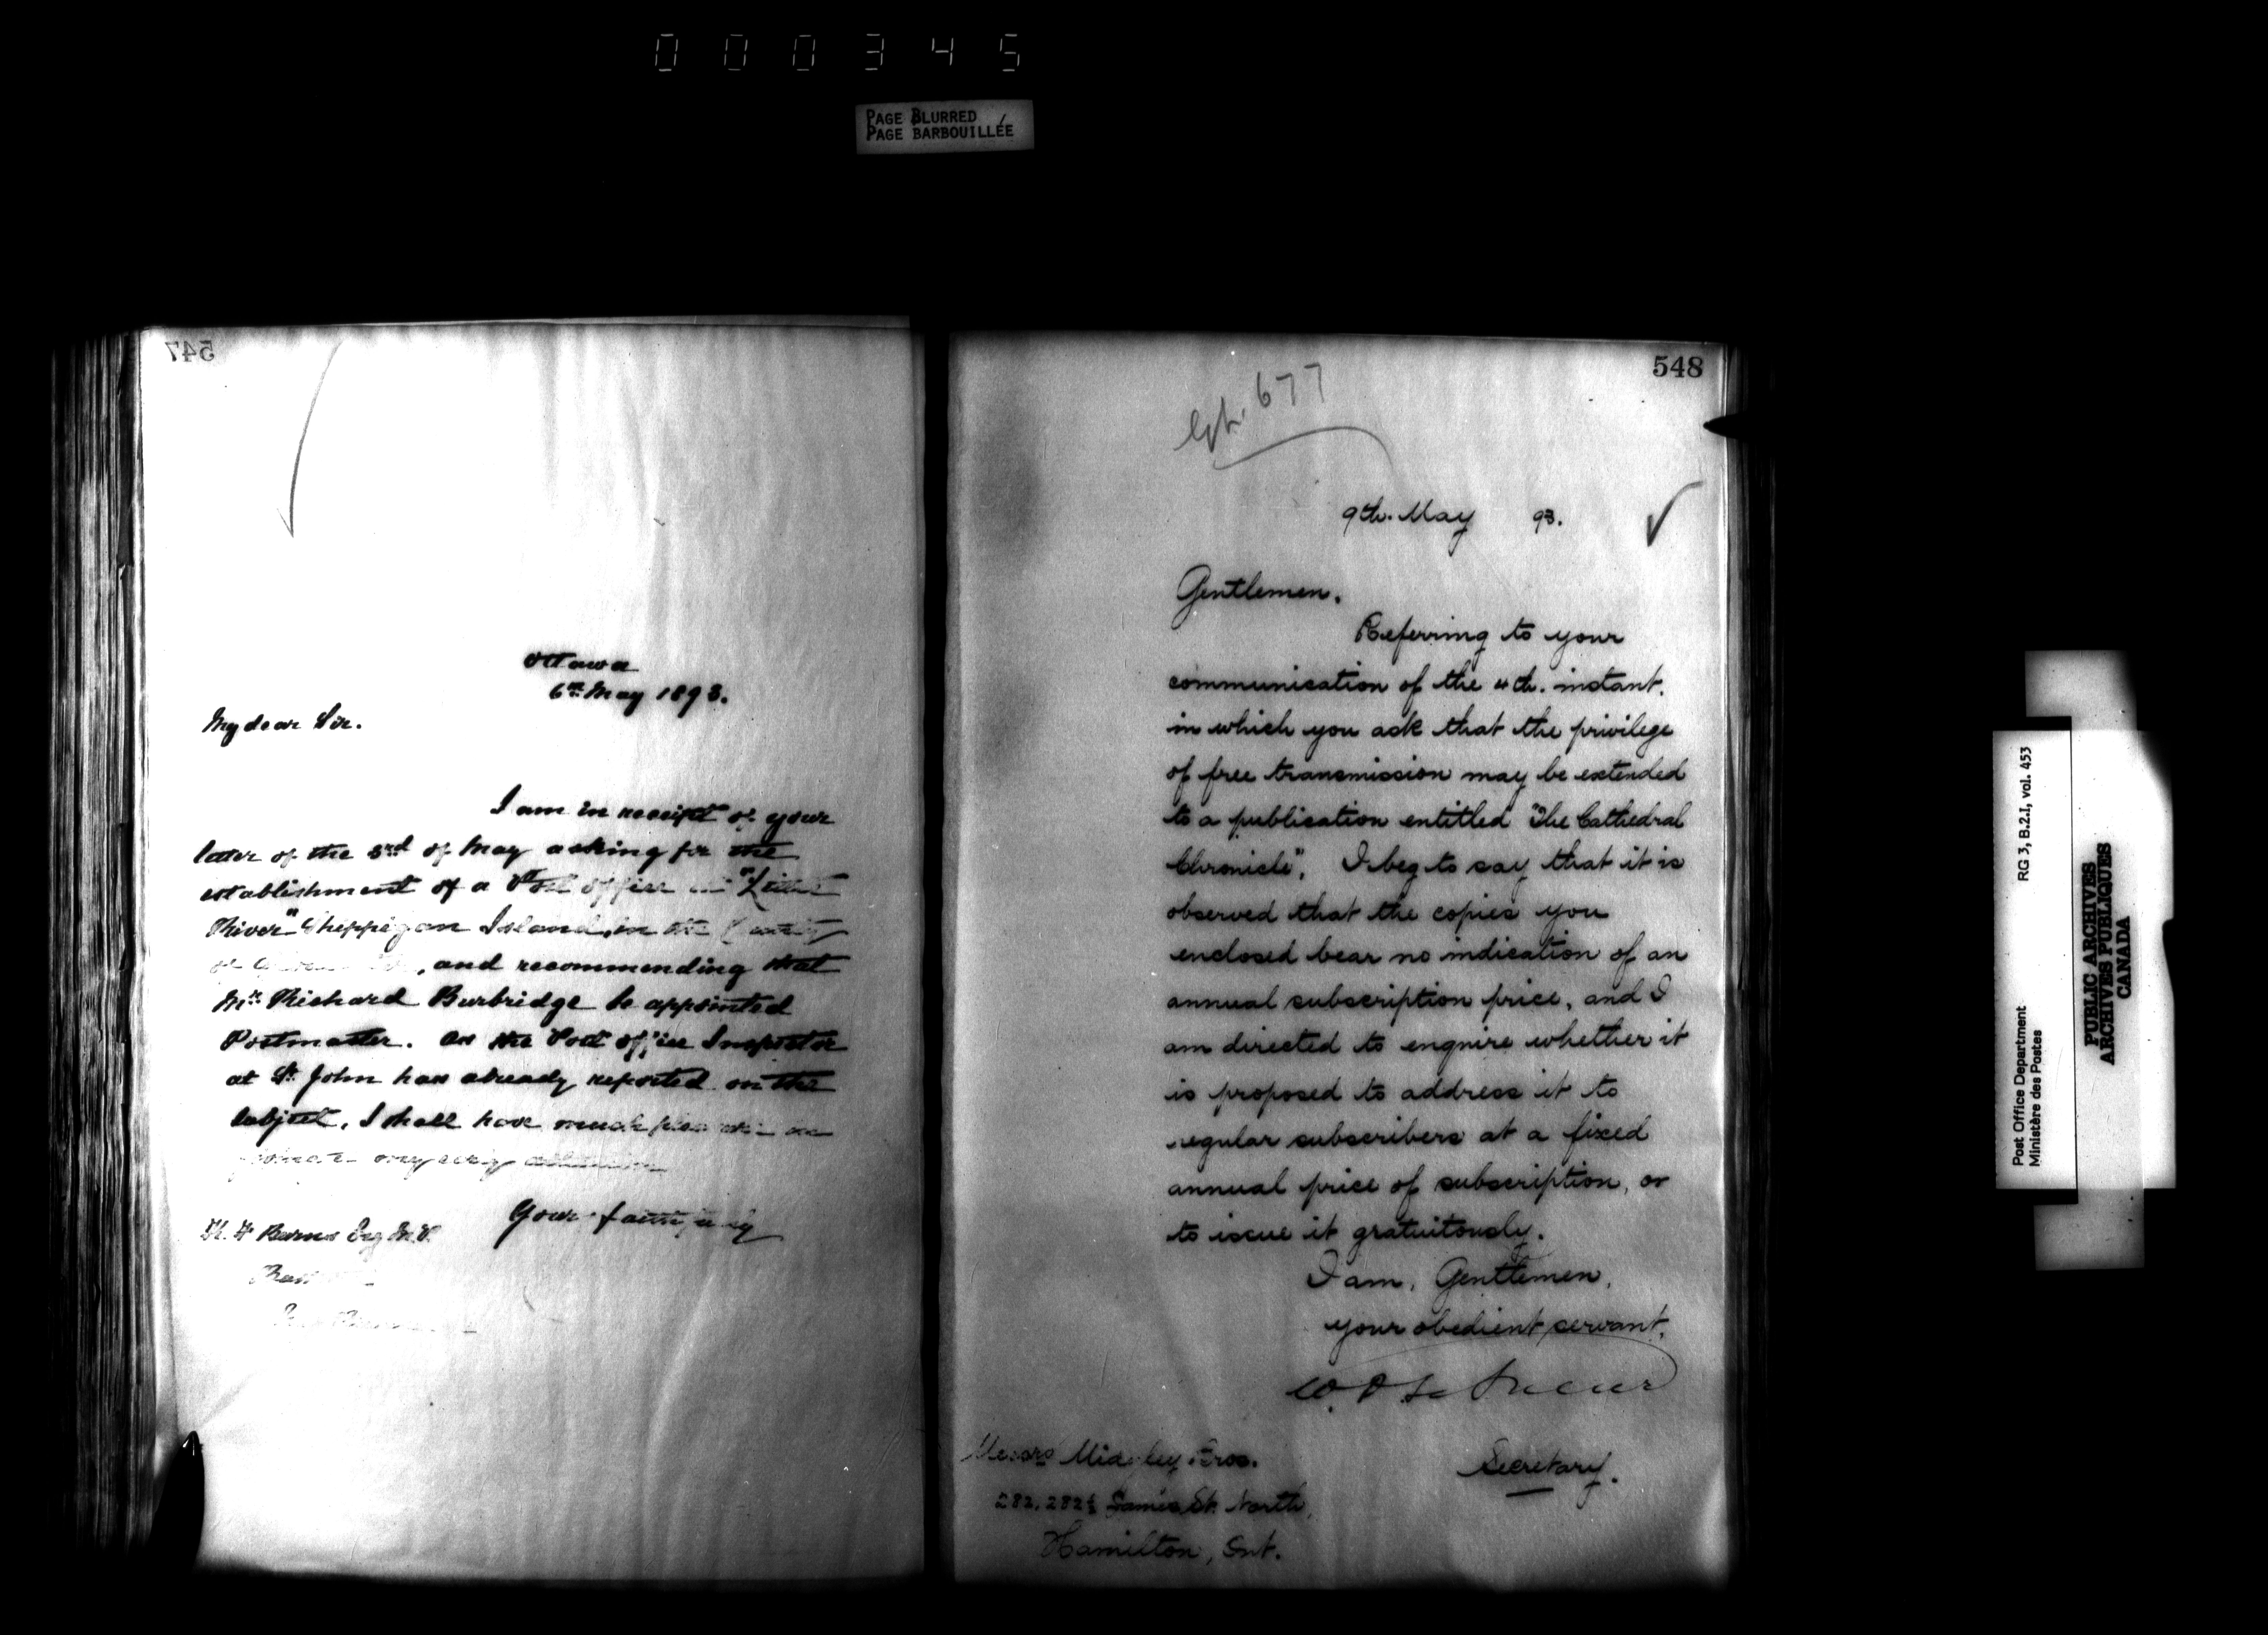 000345
PAGE BLURRED
PAGE BARBOUILLÉE
547
Ottawa
6th May 1893.
My dear Sir.
I am in receipt of your
letter of the 3rd of May asking for the
establishment of a Post Office at "Little
River" Sheppegan Island, in the County
of , and recommending that
Mr. Richard Burbridge be appointed
Postmaster. As the Post Office Inspector
at St. John has already reported on the
subject, I shall have much pleasure in
my early attention
Yours faithfully
K. F. Burns Esq M.P.
548
677
9th. May 93.
Gentlemen.
Referring to your
communication of the 4th. instant,
in which you ask that the privilege
of free transmission may be extended
to a publication entitled "The Cathedral
Chronicle", I beg to say that it is
observed that the copies you
enclosed bear no indication of an
annual subscription price, and I
am directed to enquire whether it
is proposed to address it to
regular subscribers at a fixed
annual price of subscription, or
to issue it gratuitously.
I am, Gentlemen,
your obedient servant,
W. D. Le Sueur
Secretary.
Messrs Midgley Bros.
282, 282½ James St. North,
Hamilton, Ont.
RG 3, B.2.I, vol. 453
Post Office Department
Ministère des Postes
PUBLIC ARCHIVES
ARCHIVES PUBLIQUES
CANADA